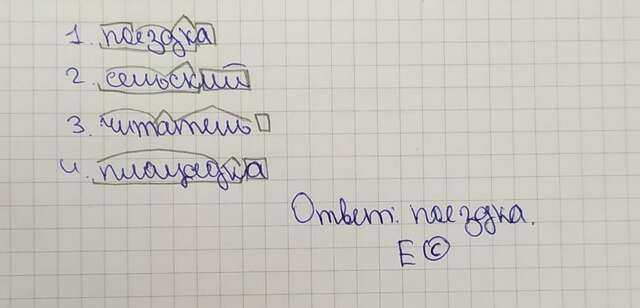 1. поездка
2. сельский
3. читатель
4. площадка
Ответ: поездка.
Е ©